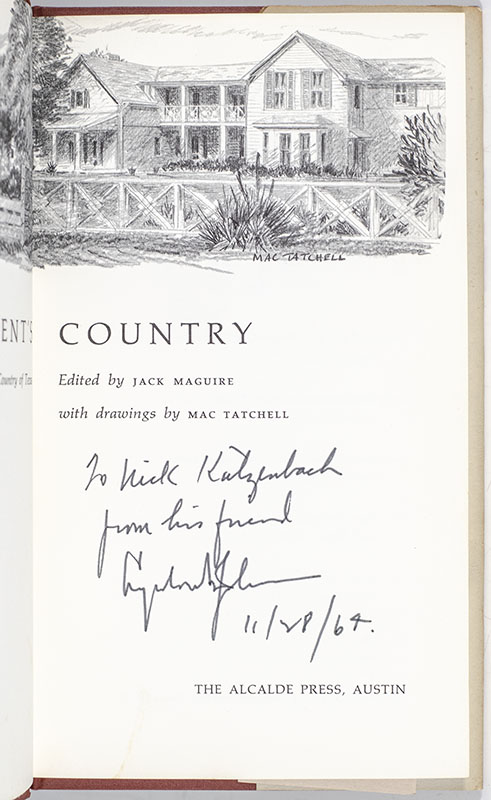 MAC TATCHELL
ENT'S COUNTRY
Country of Texa
Edited by JACK MAGUIRE
with drawings by MAC TATCHELL
To Nick Katzenbach
from his friend
Lyndon B Johnson
11/28/64.
THE ALCALDE PRESS, AUSTIN